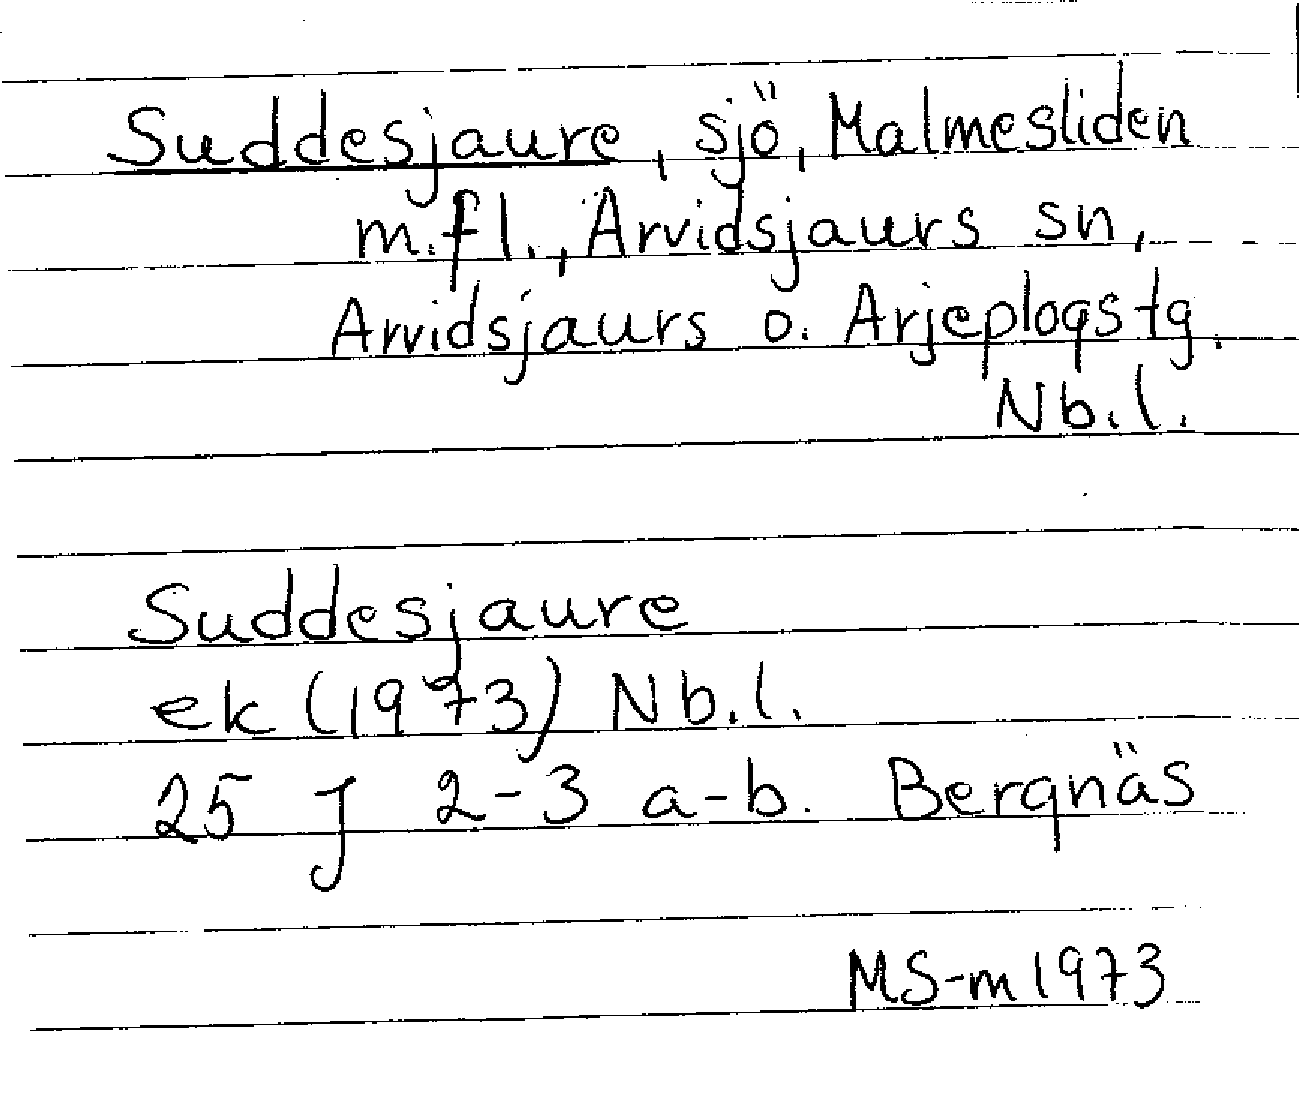 Suddesjaure, sjö, Malmesliden
m.fl., Arvidsjaurs sn,
Arvidsjaurs o. Arjeplogs tg.
Nb.l.
Suddesjaure
ek (1973) Nb.l.
25 J 2-3 a-b. Bergnäs
MS-m 1973